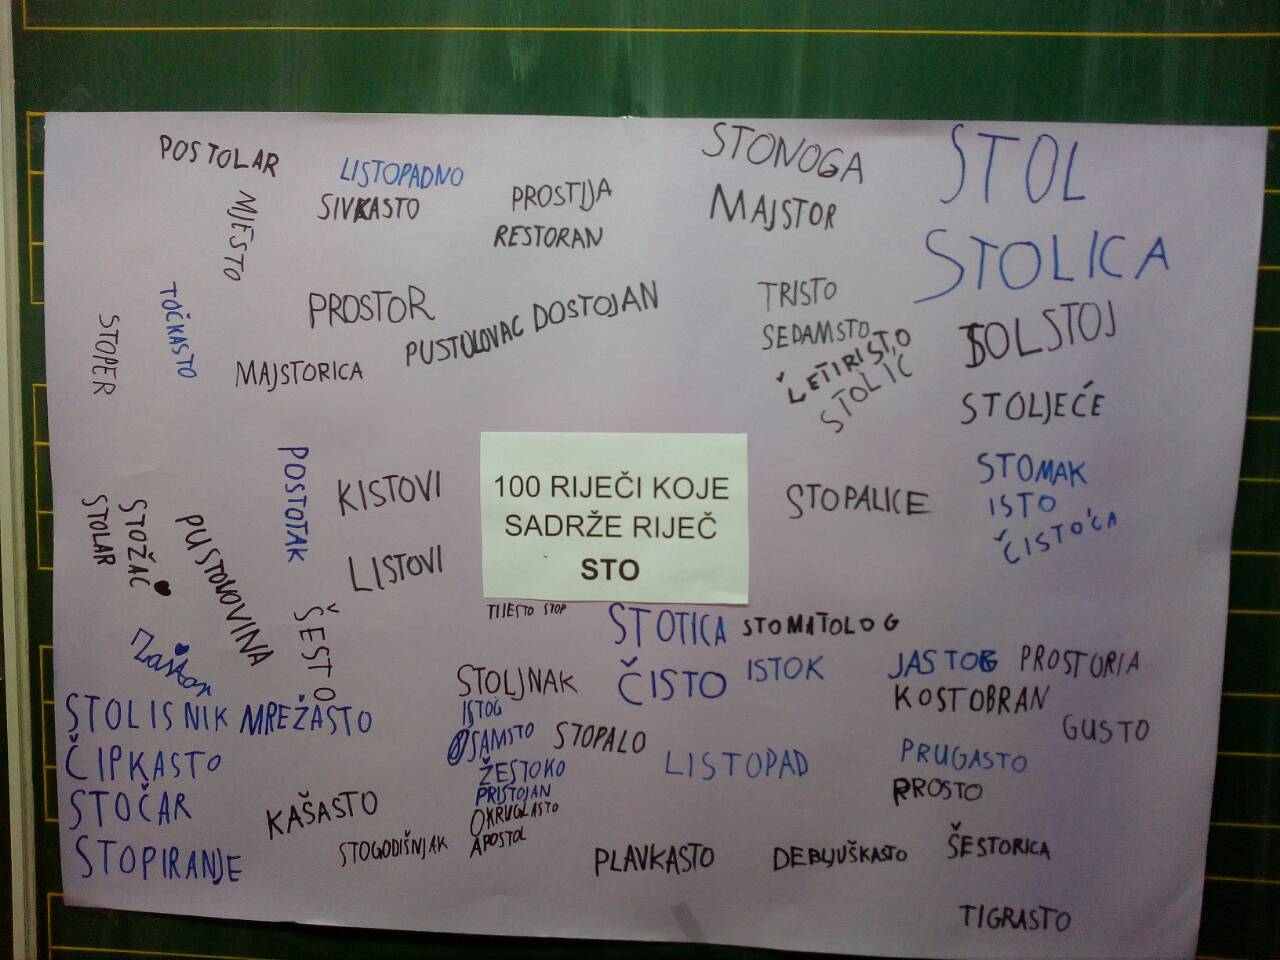 POSTOLAR
LISTOPADNO
SIVKASTO
MJESTO
PROSTIJA
RESTORAN
STONOGA
MAJSTOR
STOL
STOLICA
TOČKASTO
STOPER
PROSTOR
MAJSTORICA
PUSTOLOVAC
DOSTOJAN
TRISTO
SEDAMSTO
ČETIRISTO
STOLIĆ
TOLSTOJ
STOLJEĆE
STOMAK
ISTO
ČISTOĆA
STOPALICE
POSTOTAK
KISTOVI
LISTOVI
100 RIJEČI KOJE
SADRŽE RIJEČ
STO
STOLAR
STOŽAC
PUSTOLOVINA
ŠESTO
TIJESTO STOP
STOTICA
STOMATOLOG
ČISTO
ISTOK
JASTOG
PROSTORIA
KOSTOBRAN
GUSTO
STOLISNIK
MREŽASTO
ČIPKASTO
STOČAR
STOPIRANJE
STOLJNAK
ISTOG
OSAMSTO
STOPALO
ŽESTOKO
PRISTOJAN
OKRUGLASTO
APOSTOL
LISTOPAD
PRUGASTO
PROSTO
KAŠASTO
STOGODIŠNJAK
PLAVKASTO
DEBLJUŠKASTO
ŠESTORICA
TIGRASTO